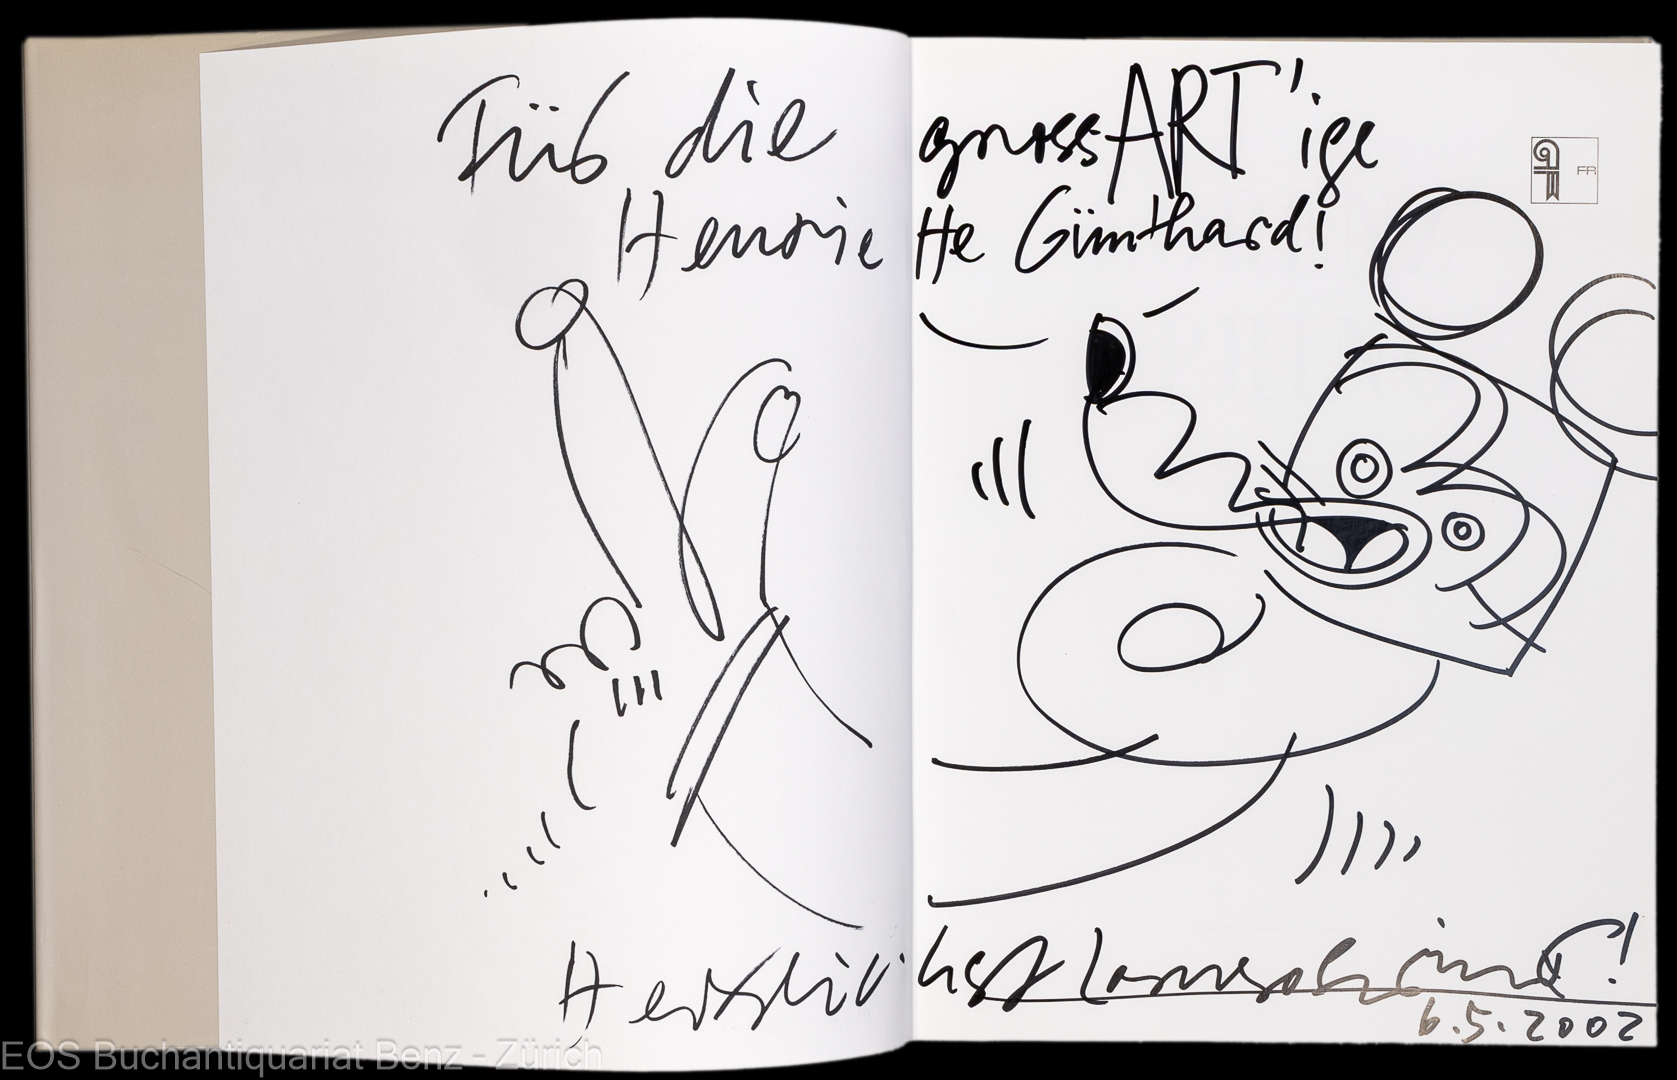 Für die grossART'ige
Henrietте Günthard!
FR
Herzlichst Lamprecht!
6.5.2002
EOS Buchantiquariat Benz - Zürich